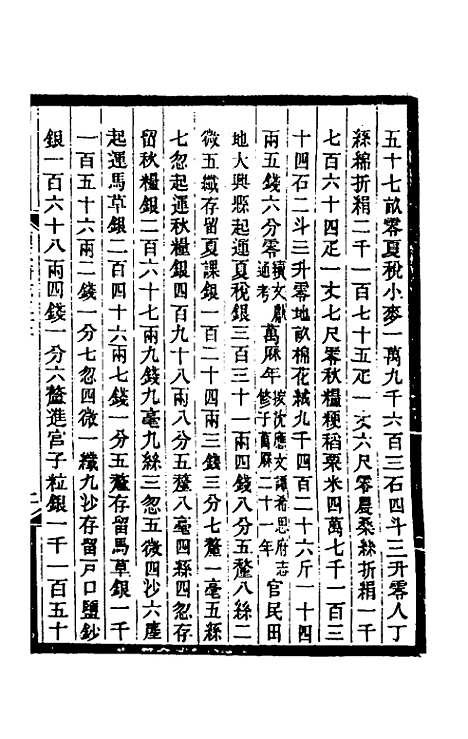 五十七畝零夏稅小麥一萬九千六百三石四斗三升零人丁
絲綿折絹二千一百七十五疋一丈六尺零農桑絲折絹一千
七百六十四疋一丈七尺零秋糧粳稻粟米四萬七千一百三
十四石二斗三升零地畝棉花絨九千四百二十六斤一十四
兩五錢六分零續文獻通考萬厤年按沈應文譚希思府志修于萬厤二十一年官民田
地大興縣起運夏稅銀三百三十一兩四錢八分五釐八絲二
微五纖存留夏課銀一百二十四兩三錢三分七釐一毫五絲
七忽起運秋糧銀四百九十八兩八分五釐八毫四絲四忽存
留秋糧銀二百六十七兩九錢九毫九絲三忽五微四沙六塵
起運馬草銀二百四十六兩七錢一分五釐存留馬草銀一千
一百五十六兩二錢一分七忽四微一纖九沙存留戸口鹽鈔
銀一百六十八兩四錢一分六釐進宮子粒銀一千一百五十